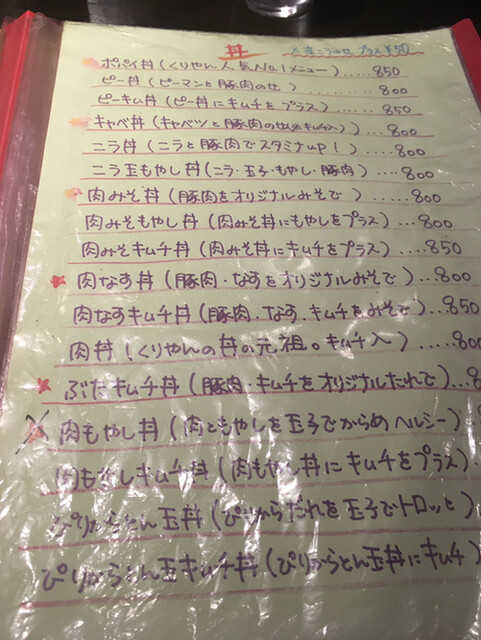 丼
プラス ¥50
ポパイ丼(くりやん人気No.1メニュー).....850
ピー丼(ピーマンと豚肉のせ).....800
ピーキム丼(ピー丼にキムチをプラス).....850
キャベ丼(キャベツと豚肉のせ※キムチ入)....800
ニラ丼(ニラと豚肉でスタミナup!....800
ニラ玉もやし丼(ニラ・玉子・もやし・豚肉)....800
肉みそ丼(豚肉をオリジナルみそで)....800
肉みそもやし丼(肉みそ丼にもやしをプラス)..800
肉みそキムチ丼(肉みそ丼にキムチをプラス)..850
肉なす丼(豚肉・なすをオリジナルみそで)...800
肉なすキムチ丼(豚肉・なす・キムチをみそで)...850
肉丼!くりやんの丼の元祖。キムチ入).....800
ぶたキムチ丼(豚肉・キムチをオリジナルたれで)...8
肉もやし丼(肉ともやしを玉子でからめヘルシー)..
肉もやしキムチ丼(肉もやし丼にキムチをプラス).
ぴりからとん玉丼(ぴりからだれを玉子でトロッと)
ぴりからとん玉キムチ丼(ぴりからとん玉丼にキムチ